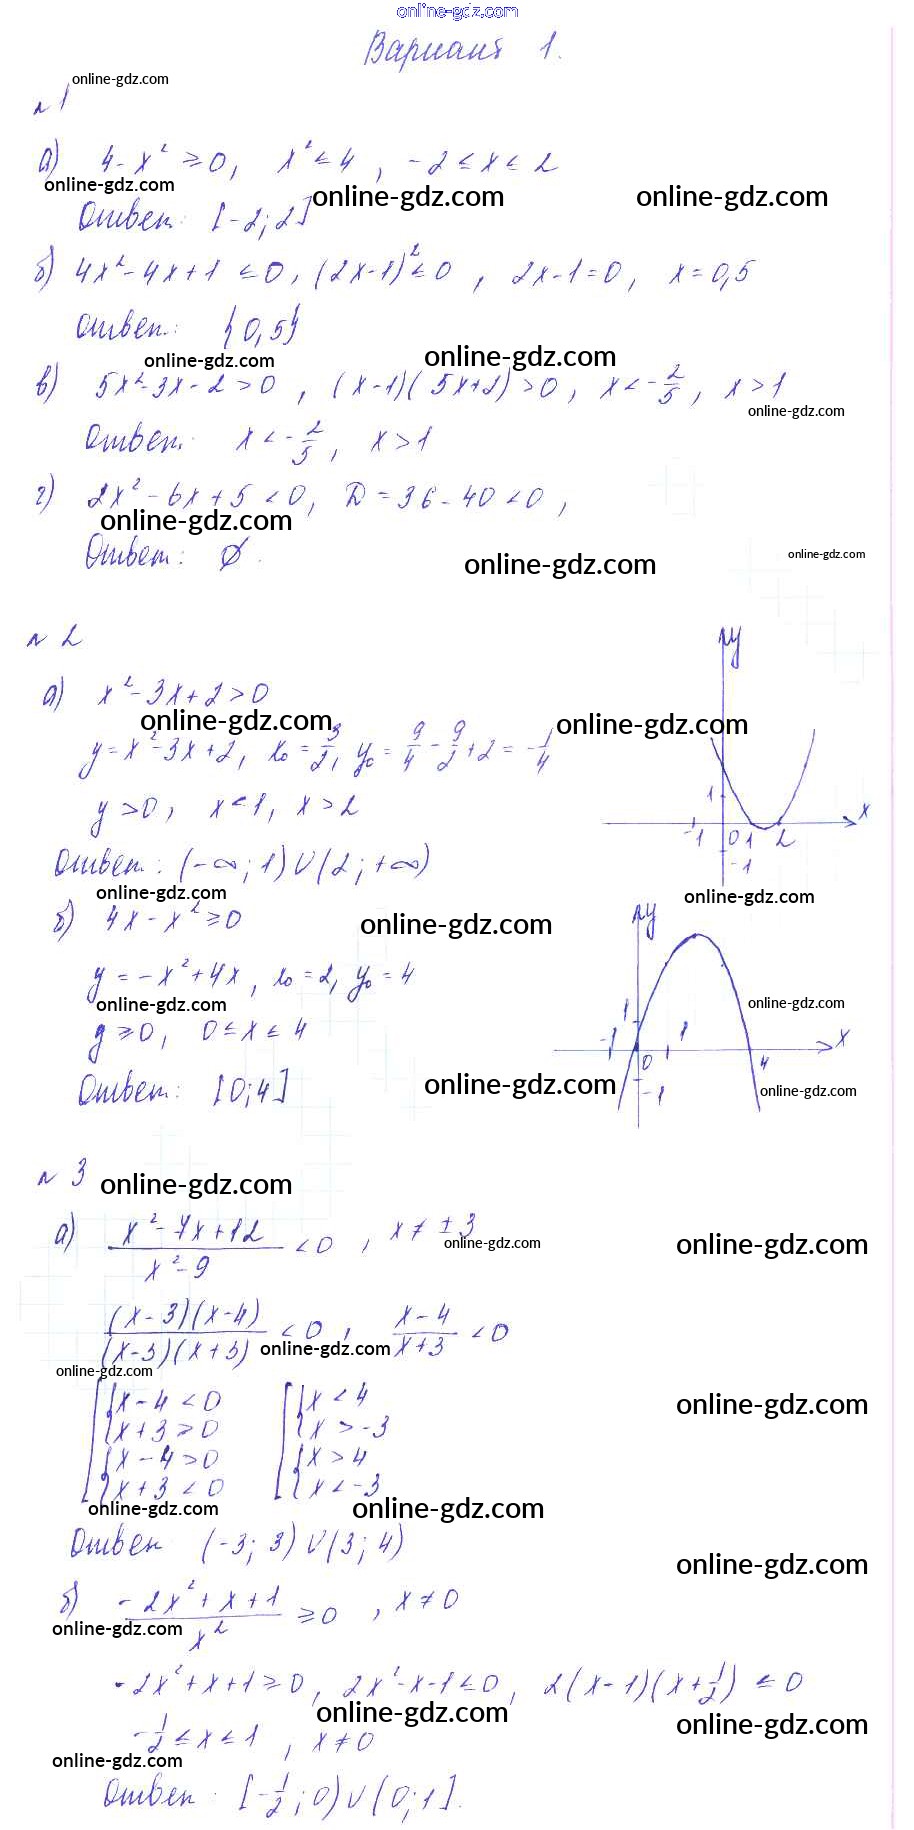 online-gdz.com
Вариант 1.
online-gdz.com
№1
а) 4-x² ≥ 0, x² ≤ 4, -2 ≤ x ≤ 2
online-gdz.com online-gdz.com online-gdz.com
Ответ: [-2; 2]
б) 4x²-4x+1 ≤ 0, (2x-1)² ≤ 0, 2x-1=0, x=0,5
Ответ: {0,5}
online-gdz.com online-gdz.com
в) 5x²-3x-2>0, (x-1)(5x+2)>0, x<-2/5, x>1
online-gdz.com
Ответ: x<-2/5, x>1
г) 2x²-6x+5<0, D=36-40<0,
online-gdz.com
Ответ: ∅.
online-gdz.com online-gdz.com
№2
а) x²-3x+2>0
online-gdz.com online-gdz.com
y=x²-3x+2, x₀=3/2, y₀=9/4-9/2+2=-1/4
y>0, x<1, x>2
y 1 x -1 0 1 2 -1
Ответ: (-∞; 1)∪(2; +∞)
online-gdz.com online-gdz.com
б) 4x-x² ≥ 0
online-gdz.com
y=-x²+4x, x₀=2, y₀=4
online-gdz.com online-gdz.com
y ≥ 0, 0 ≤ x ≤ 4
y 1 -1 1 x 0 4 -1
Ответ: [0; 4]
online-gdz.com online-gdz.com
№3
online-gdz.com
а) x²-7x+12/x²-9 <0, x≠±3
online-gdz.com online-gdz.com
(x-3)(x-4)/(x-3)(x+3) <0, x-4/x+3 <0
online-gdz.com
online-gdz.com
x-4<0 x<4
online-gdz.com
x+3>0 x>-3
x-4>0 x>4
x+3<0 x<-3
online-gdz.com online-gdz.com
Ответ (-3; 3)∪(3; 4)
online-gdz.com
б) -2x²+x+1/x² ≥ 0, x≠0
online-gdz.com
-2x²+x+1 ≥ 0, 2x²-x-1 ≤ 0, 2(x-1)(x+1/2) ≤ 0
online-gdz.com online-gdz.com
-1/2 ≤ x ≤ 1, x≠0
online-gdz.com
Ответ: [-1/2; 0)∪(0; 1].